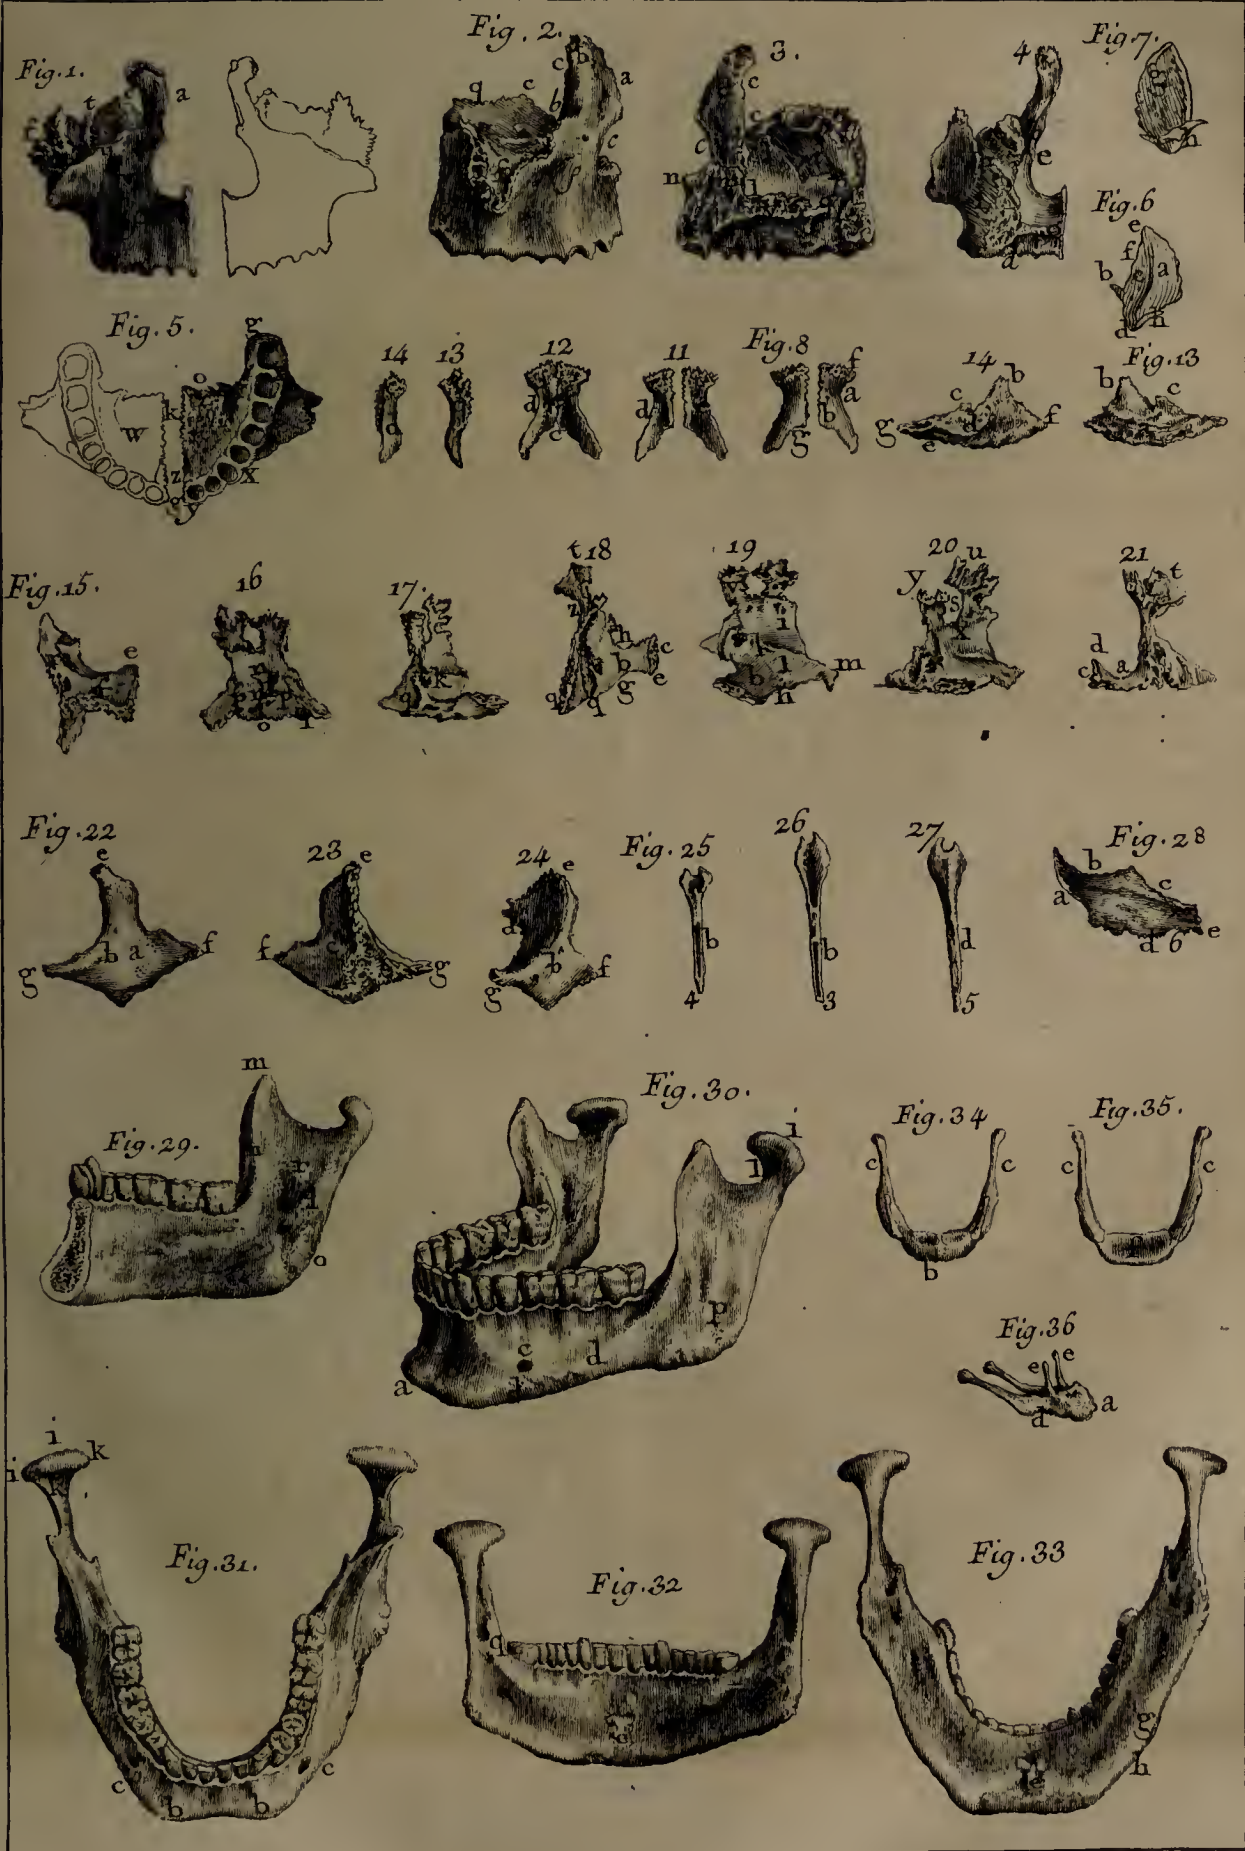 Fig. 1. t a
Fig. 2. q e c b a b c f
3. c c c n
4 e d
Fig. 7. g h
Fig. 6 e f b c a d h
Fig. 5. g o k w z x g
14
13
12 d c
11 d
Fig. 8 f a b g
14 b c d f g e
Fig. 13 b c
Fig. 15. e
16 o
17. k
t 18 z h c b e g q q
19 i k l m b n
20 u y s x
21 t d c a
Fig. 22 e b a f g
23 e f c g
24 e d b f g
Fig. 25 b 4
26 b 3
27 d 5
Fig. 28 b c a d 6 e
Fig. 29. m r o
Fig. 30. i l p c d a
Fig. 34 c c b
Fig. 35. c c
Fig. 36 e e a d
Fig. 31. i k i c c b b
Fig. 32 q
Fig. 33 g h e